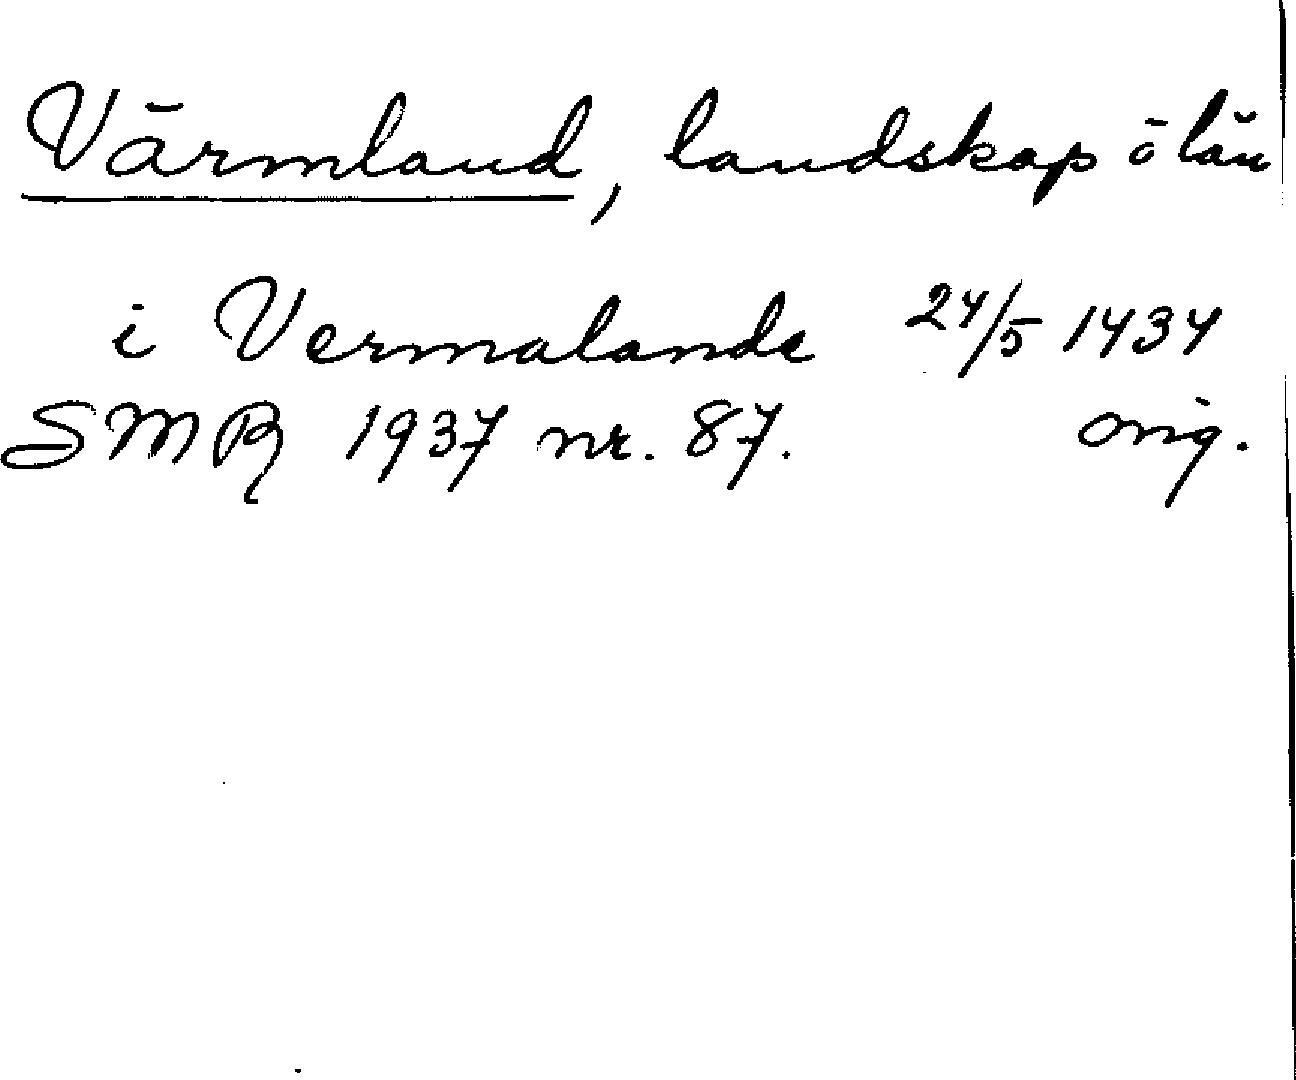 Värmland, landskap ö län
i Vermalande 24/5 1434
SMR 1937 nr. 87. orig.